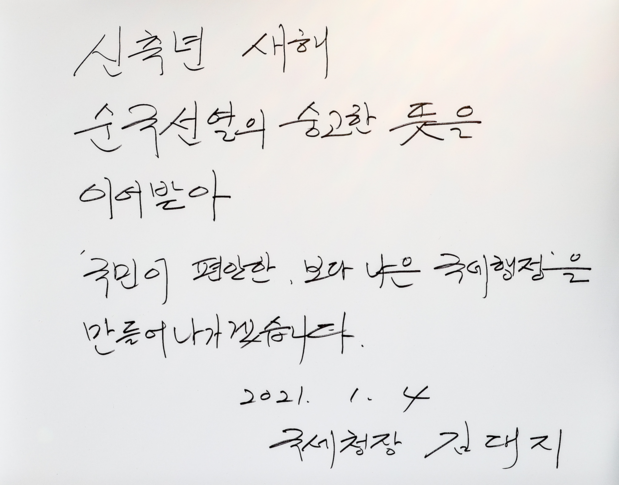 신축년 새해
순국선열의 숭고한 뜻을
이어받아
'국민이 편안한, 보다 나은 국세행정'을
만들어나가겠습니다.
2021. 1. 4
국세청장 김대지